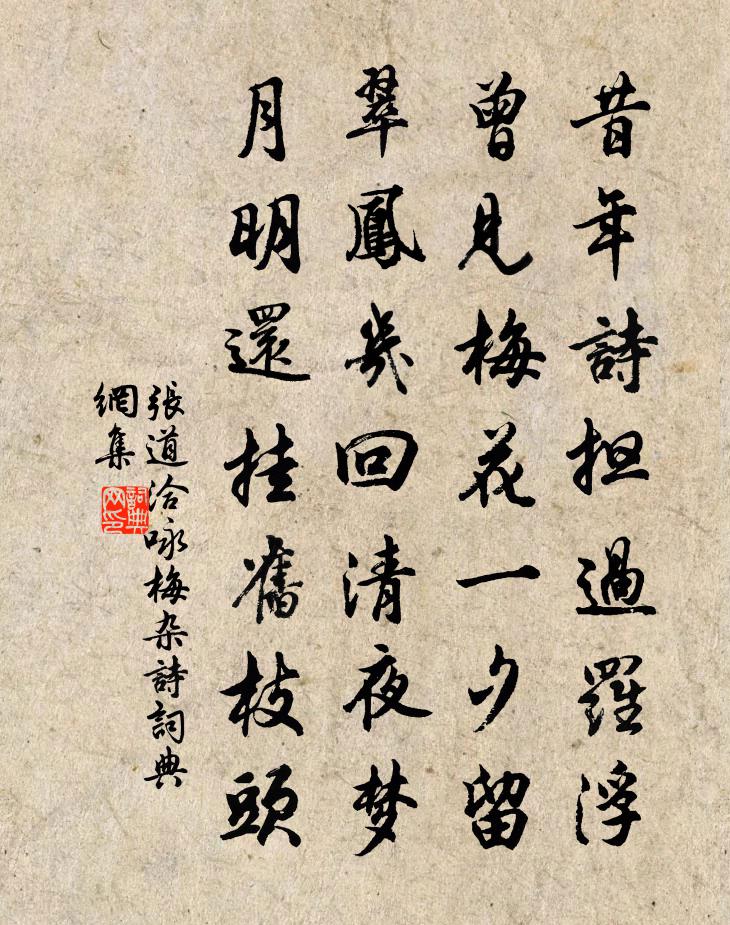 昔年詩担過羅浮
曾見梅花一夕留
翠鳳幾回清夜梦
月明還挂舊枝頭
張道洽咏梅杂詩詞典
網集
詞典
网印